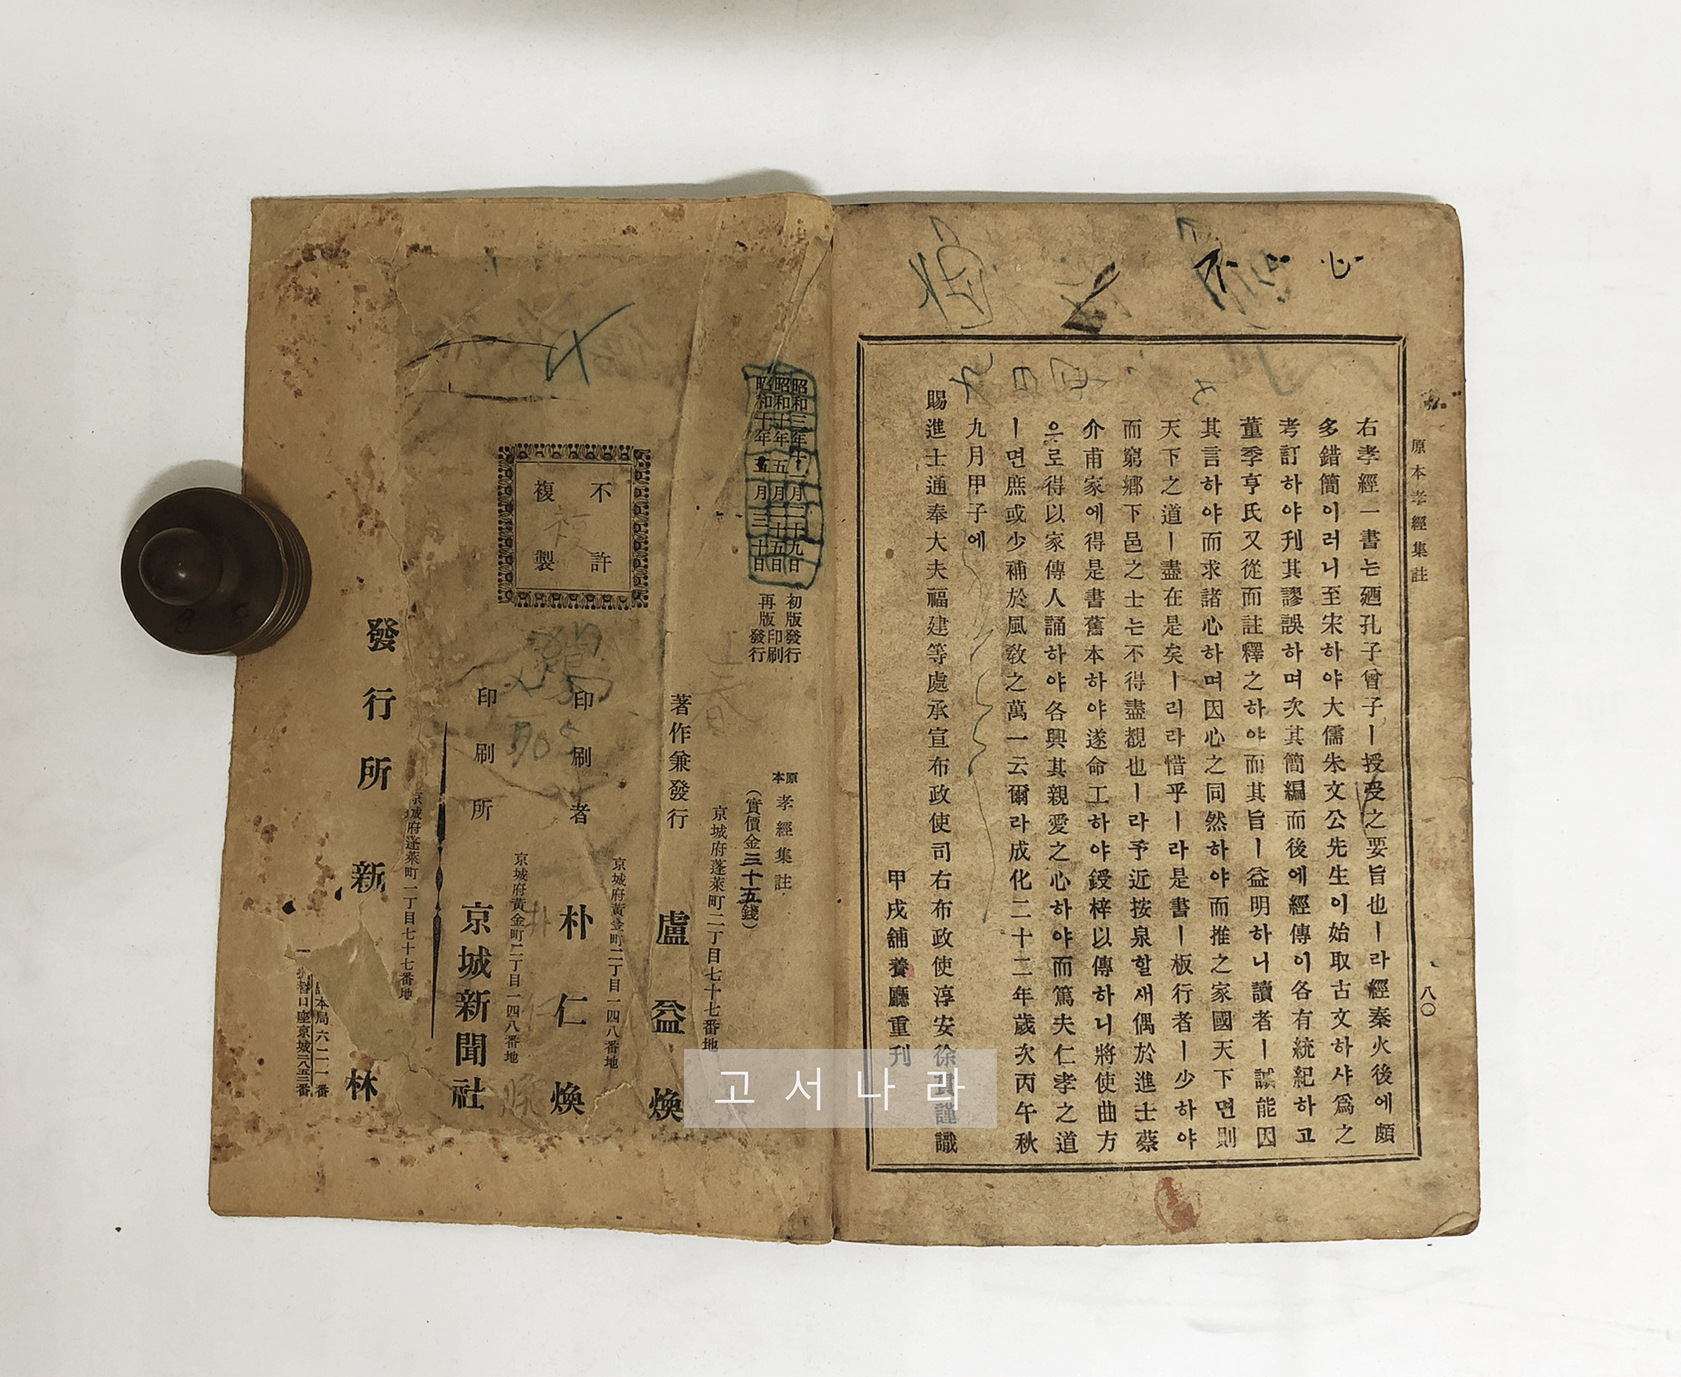 原本孝經集註
八〇
右孝經一書는廼孔子曾子ㅣ授受之要旨也ㅣ라經秦火後에頗
多錯簡이러니至宋하야大儒朱文公先生이始取古文하샤爲之
考訂하야刊其謬誤하며次其簡編而後에經傳이各有統紀하고
董季亨氏又從而註釋之하야而其旨ㅣ益明하니讀者ㅣ誠能因
其言하야而求諸心하며因心之同然하야而推之家國天下면則
天下之道ㅣ盡在是矣ㅣ리라惜乎ㅣ라是書ㅣ板行者ㅣ少하야
而窮鄕下邑之士는不得盡觀也ㅣ라予近按泉할새偶於進士蔡
介甫家에得是書舊本하야遂命工하야鋟梓以傳하니將使曲方
으로得以家傳人誦하야各興其親愛之心하야而篤夫仁孝之道
ㅣ면庶或少補於風敎之萬一云爾라成化二十二年歲次丙午秋
九月甲子에
賜進士通奉大夫福建等處承宣布政使司右布政使淳安徐 謹識
甲戌舖養廳重刊
昭和三年十一月二十九日 初版發行
昭和十年五月二十五日 印刷
昭和十年五月三十日 再版發行
原本 孝經集註
(實價金三十五錢)
京城府蓬萊町二丁目七十七番地
著作兼發行 盧益煥
京城府黃金町二丁目一四八番地
印刷者 朴仁煥
京城府黃金町二丁目一四八番地
印刷所 京城新聞社
不許
複製
京城府蓬萊町二丁目七十七番地
發行所 新 林
本局六二一番
口座京城 番
고서나라